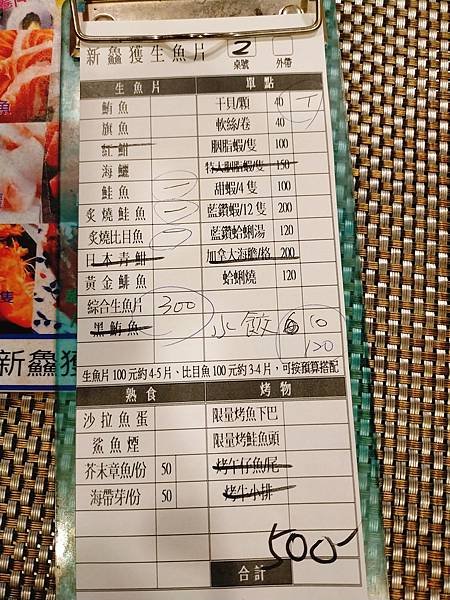 新鱻獲生魚片 2 桌號 外帶
生魚片 單點
鮪魚 干貝/顆 40 丅
旗魚 軟絲/卷 40
紅魽 胭脂蝦/隻 100
海鱺 特大胭脂蝦/隻 150
鮭魚 一 甜蝦/4隻 100
炙燒鮭魚 一 藍鑽蝦/12隻 200
炙燒比目魚 一 藍鑽蛤蜊湯 120
日本青魽 加拿大海膽/格 200
黃金鯡魚 蛤蜊燒 120
綜合生魚片 300
水餃 10
黑鮪魚 120
生魚片100元約4-5片、比目魚100元約3-4片，可按預算搭配
熟食 烤物
沙拉魚蛋 限量烤魚下巴
鯊魚煙 限量烤鮭魚頭
芥末章魚/份 50 烤午仔魚/尾
海帶芽/份 50 烤牛小排
500
合計
新鱻獲
魚
隻